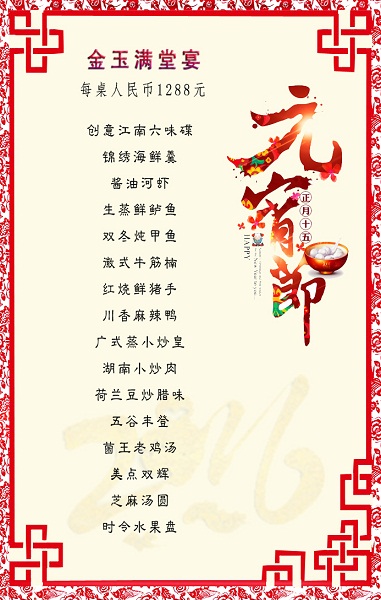 金玉满堂宴
每桌人民币1288元
创意江南六味碟
锦绣海鲜羹
酱油河虾
生蒸鲜鲈鱼
双冬炖甲鱼
潋式牛筋楠
红烧鲜猪手
川香麻辣鸭
广式蒸小炒皇
湖南小炒肉
荷兰豆炒腊味
五谷丰登
菌王老鸡汤
美点双辉
芝麻汤圆
时令水果盘
元宵節
正月十五
HAPPY